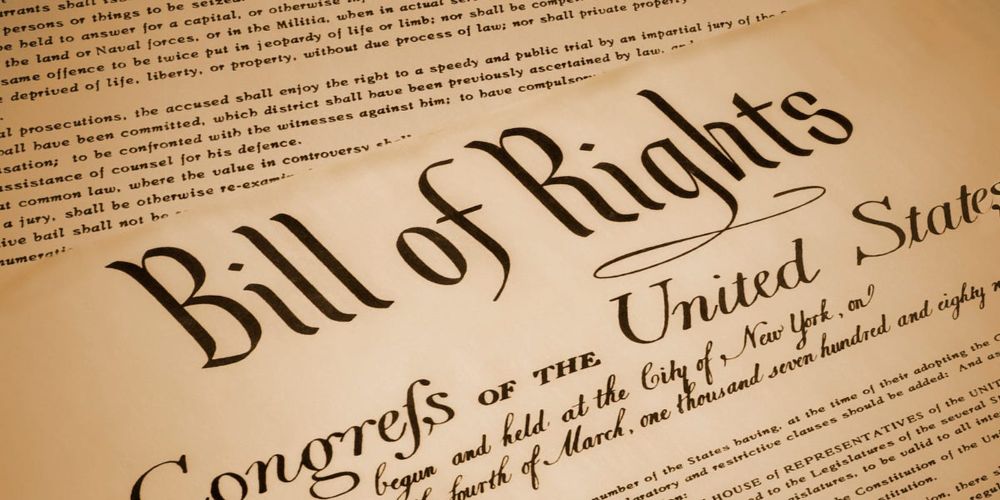 shall
persons or things to be seized.
be held to answer for a capital, or otherwise
the land or Naval forces, or in the Militia, when in actual
same offence to be twice put in jeopardy of life or limb; nor shall be
deprived of life, liberty, or property, without due process of law; nor shall private property
prosecutions, the accused shall enjoy the right to a speedy and public trial by an impartial jury of the
have been committed, which district shall have been previously ascertained by law,
to be confronted with the witnesses against him; to have
assistance of counsel for his defence.
at common law, where the value in controversy
a jury, shall be otherwise
bail shall not be
Bill of Rights
Congreſs OF THE United States
begun and held at the City of New York, on
fourth of March, one thousand seven hundred and eighty
number of the States having, at the time of their adopting the
and restrictive clauses should be added: And
HOUSE of REPRESENTATIVES of the
to the Legislatures of the several
Legislatures, to be valid to all
Constitution of the
Constitution.